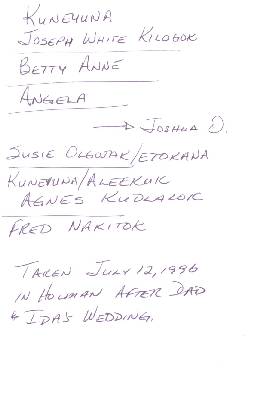 KUNEYUNA
JOSEPH WHITE KILOGOK
BETTY ANNE
ANGELA
→ JOSHUA O.
SUSIE OLGWAK/ETOKANA
KUNEYUNA/ALEEKUK
AGNES KUDLALOK
FRED NAKITOK
TAKEN JULY 12, 1996
IN HOLMAN AFTER DAD
& IDA'S WEDDING.